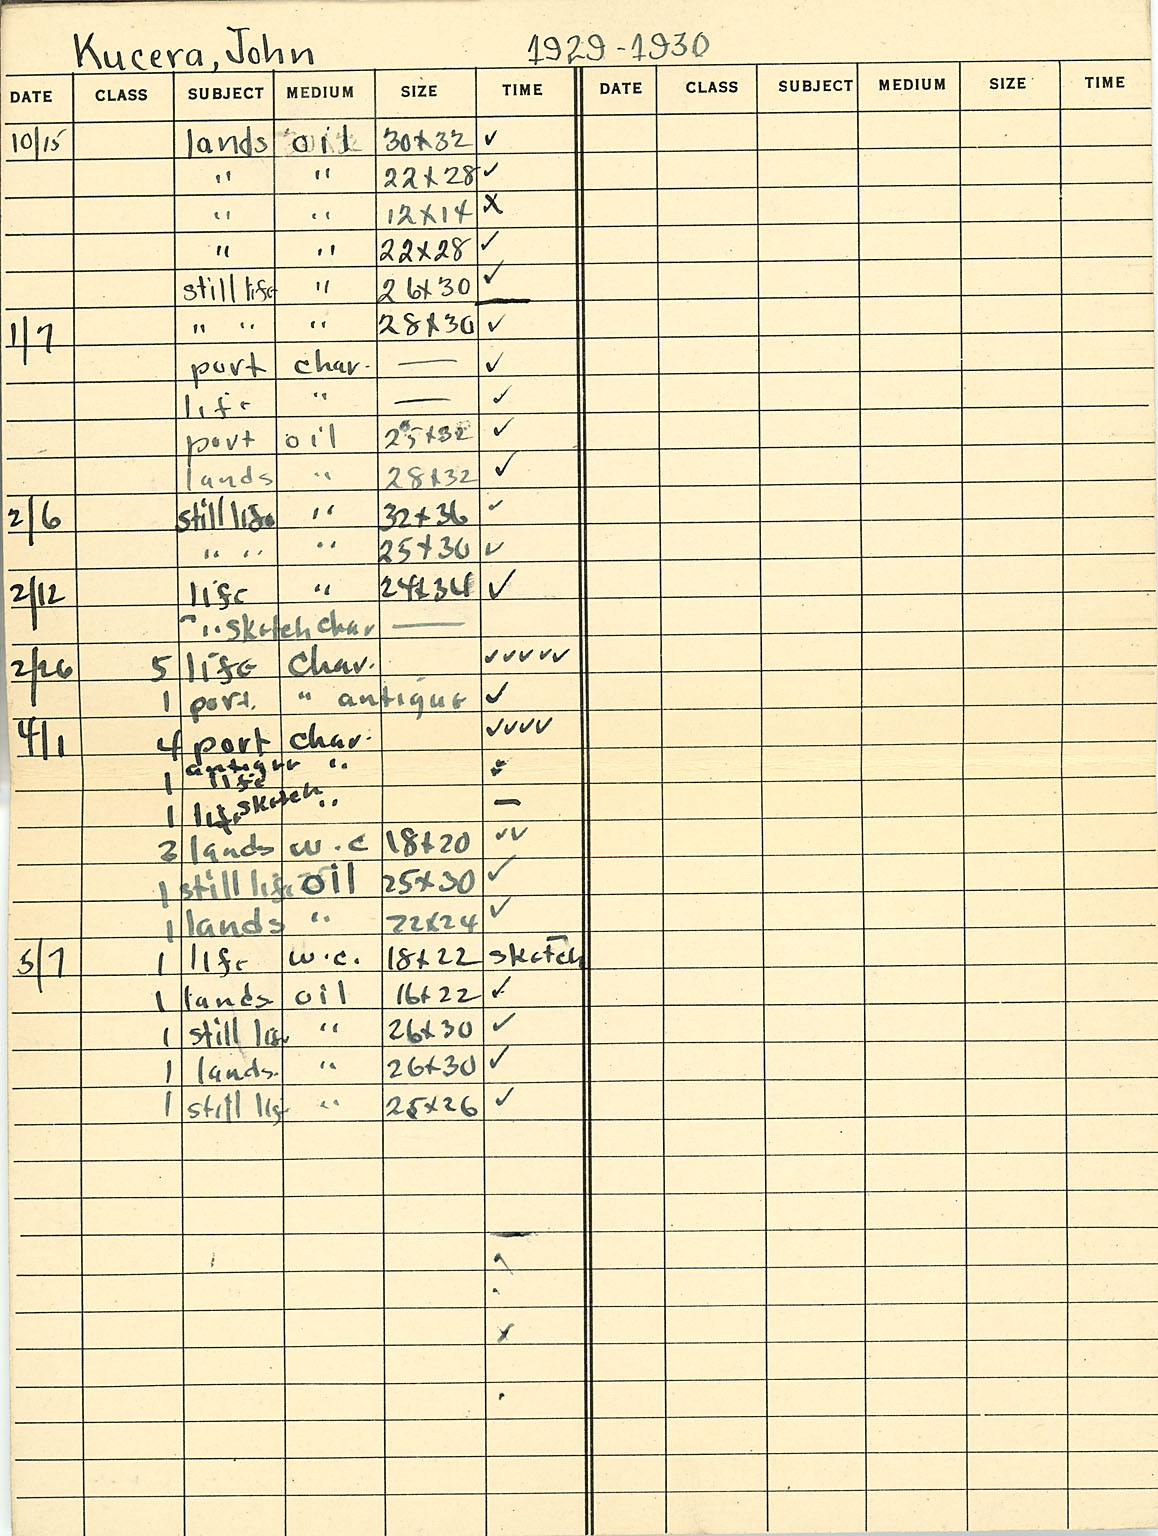 Kucera, John 1929-1930
DATE CLASS SUBJECT MEDIUM SIZE TIME DATE CLASS SUBJECT MEDIUM SIZE TIME
10/15 lands oil 30x32 ✓
" " 22x28 ✓
" " 12x14 x
" " 22x28 ✓
still life " 26x30 ✓
1/7 " " " 28x30 ✓
port char. — ✓
life " — ✓
port oil 25x32 ✓
lands " 28x32 ✓
2/6 still life " 32x36 ✓
" " " 25x30 ✓
2/12 life " 24x34 ✓
" sketch char —
2/26 5 life char. ✓✓✓✓✓
1 port. " antique ✓
4/1 4 port char. ✓✓✓✓
antique "
1 life ✓
1 life sketch " —
lands w.c 18x20 ✓✓
1 still life oil 25x30 ✓
1 lands " 22x24 ✓
5/7 1 life w.c. 18x22 sketch
1 lands oil 16x22 ✓
1 still life " 26x30 ✓
1 lands. " 26x30 ✓
1 still life " 25x26 ✓